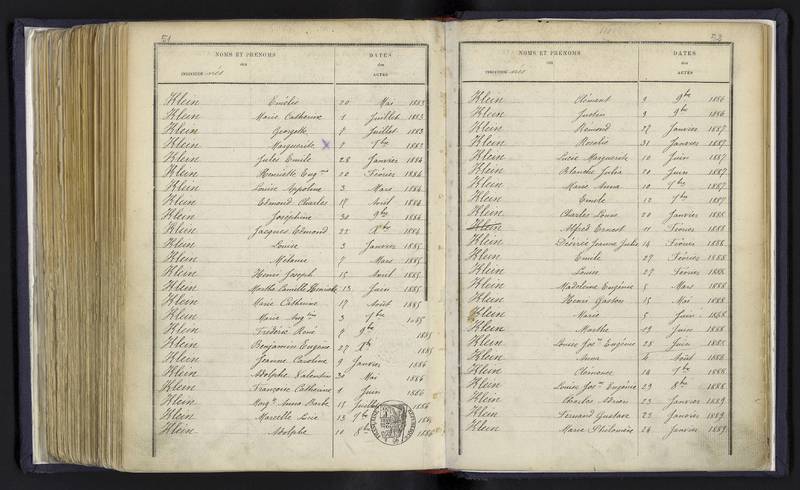 51
NOMS ET PRÉNOMS
DES
INDIVIDUS nés
DATES
des
ACTES
Klein Emélie 20 Mai 1883
Klein Marie Catherine 1 Juillet 1883
Klein Georgette 7 Juillet 1883
Klein Marguerite 2 7bre 1883
Klein Jules Emile 28 Janvier 1884
Klein Henriette Eugnie 20 Février 1884
Klein Louise Appoline 3 Mars 1884
Klein Edmond Charles 17 Avril 1884
Klein Joséphine 30 9bre 1884
Klein Jacques Edmond 22 Xbre 1884
Klein Louise 3 Janvier 1885
Klein Mélanie 7 Mars 1885
Klein Henri Joseph 15 Avril 1885
Klein Marthe Camille Henriette 13 Juin 1885
Klein Marie Catherine 17 Août 1885
Klein Marie Augtine 3 7bre 1885
Klein Frédéric René 7 9bre 1885
Klein Benjamin Eugène 27 Xbre 1885
Klein Jeanne Caroline 9 Janvier 1886
Klein Adolphe Valentin 30 Mai 1886
Klein Françoise Catherine 1 Juin 1886
Klein Anna Barbe 15 Juillet 1886
Klein Marcelle Lucie 13 7bre 1886
Klein Adolphe 10 8bre 1886
52
NOMS ET PRÉNOMS
DES
INDIVIDUS nés
DATES
des
ACTES
Klein Clément 2 9bre 1886
Klein Justin 9 9bre 1886
Klein Edmond 27 Janvier 1887
Klein Rosalie 31 Janvier 1887
Klein Lucie Marguerite 10 Juin 1887
Klein Blanche Julia 20 Juin 1887
Klein Marie Anna 10 7bre 1887
Klein Emile 12 7bre 1887
Klein Charles Louis 20 Janvier 1888
Klein Alfred Ernest 11 Février 1888
Klein Désirée Jeanne Julie 14 Février 1888
Klein Emile 27 Février 1888
Klein Louise 27 Février 1888
Klein Madeleine Eugénie 5 Mars 1888
Klein Henri Gaston 15 Mai 1888
Klein Marie 5 Juin 1888
Klein Marthe 19 Juin 1888
Klein Louise Josne Eugénie 28 Juin 1888
Klein Anna 4 Août 1888
Klein Clémence 14 7bre 1888
Klein Louise Josne Eugénie 29 8bre 1888
Klein Charles Adrien 23 Janvier 1889
Klein Fernand Gustave 23 Janvier 1889
Klein Marie Philomène 24 Janvier 1889